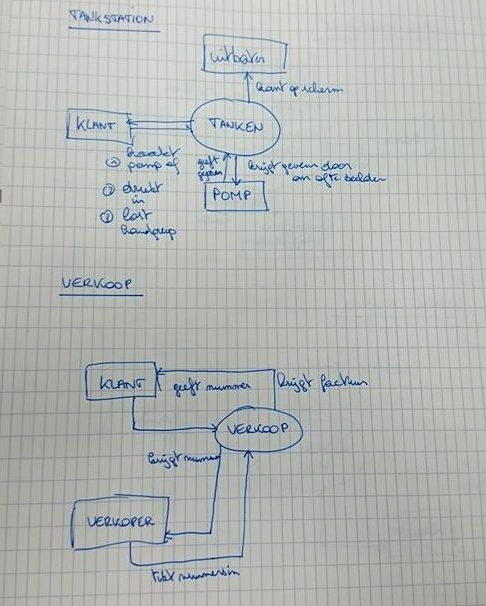 TANKSTATION
uitbater
komt op scherm
KLANT
TANKEN
① haakt
pomp af
② drukt
in
③ lost
handgreep
geeft
gegevens
krijgt gegevens door
om af te beelden
POMP
VERKOOP
KLANT
geeft nummer
krijgt factuur
VERKOOP
krijgt nummer
VERKOPER
tikt nummer in